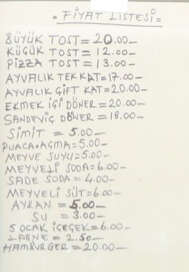 = FİYAT LİSTESİ =
BÜYÜK TOST = 20.00 -
KÜÇÜK TOST = 12.00 -
PİZZA TOST = 13.00 -
AYVALIK TEK KAT = 17.00 -
AYVALIK ÇİFT KAT = 20.00 -
EKMEK İÇİ DÖNER = 20.00 -
SANDEVİÇ DÖNER = 18.00 -
SİMİT = 5.00 -
PUACA + AÇMA = 5.00 -
MEYVE SUYU = 5.00 -
MEYVELİ SODA = 6.00 -
SADE SODA = 4.00 -
MEYVELİ SÜT = 6.00 -
AYRAN = 5.00 -
SU = 3.00 -
5 OCAK İÇEÇEK = 6.00 -
= 2.50 -
HAMBURGER = 20.00 -